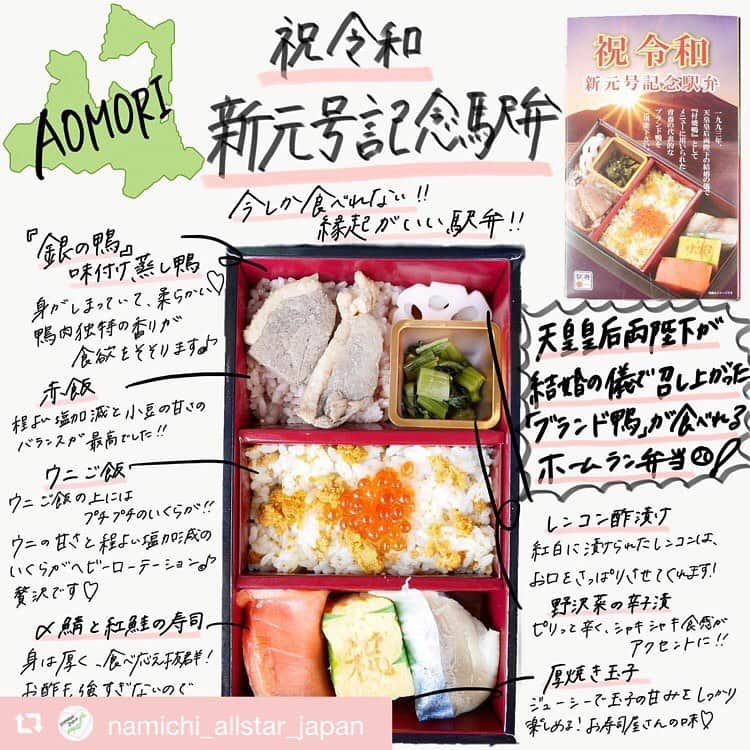 AOMORI
祝令和
新元号記念駅弁
今しか食べれない!!
縁起がいい駅弁!!
祝 令和
新元号記念駅弁
一九九三年、
天皇皇后両陛下の結婚の儀で
メニューに出いられた
青森の代表的な
ブランド鴨を
『銀の鴨』
味付け蒸し鴨
身がしまっていて、柔らかい♡
鴨肉独特の香りが
食欲をそそります♪
赤飯
程よい塩加減と小豆の甘さの
バランスが最高でした!!
ウニご飯
ウニご飯の上には
プチプチのいくらが!!
ウニの甘さと程よい塩加減の
いくらがヘビーローテーション♪
贅沢です♡
〆鯖と紅鮭の寿司
身は厚く、食べ応え抜群!
お酢も強すぎないので
天皇皇后両陛下が
結婚の儀で召し上がった
「ブランド鴨」が食べれる
ホームラン弁当
レンコン酢漬け
紅白に漬けられたレンコンは、
お口をさっぱりさせてくれます!
野沢菜の辛子漬
ピリッと辛く、シャキシャキ食感が
アクセントに!!
厚焼き玉子
ジューシーで玉子の甘みをしっかり
楽しめる!お寿司屋さんの味♡
祝
namichi_allstar_japan